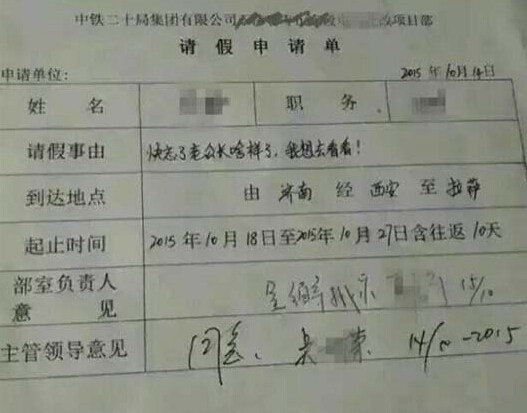 中铁二十局集团有限公司 项目部
请假申请单
申请单位: 2015年10月14日
姓名 职务
请假事由 快忘了老公长啥样了,我想去看看!
到达地点 由 济南 经 西安 至 拉萨
起止时间 2015年10月18日至2015年10月27日含往返10天
部室负责人
意见 呈领导批示 15/10
主管领导意见 同意、 14/10-2015